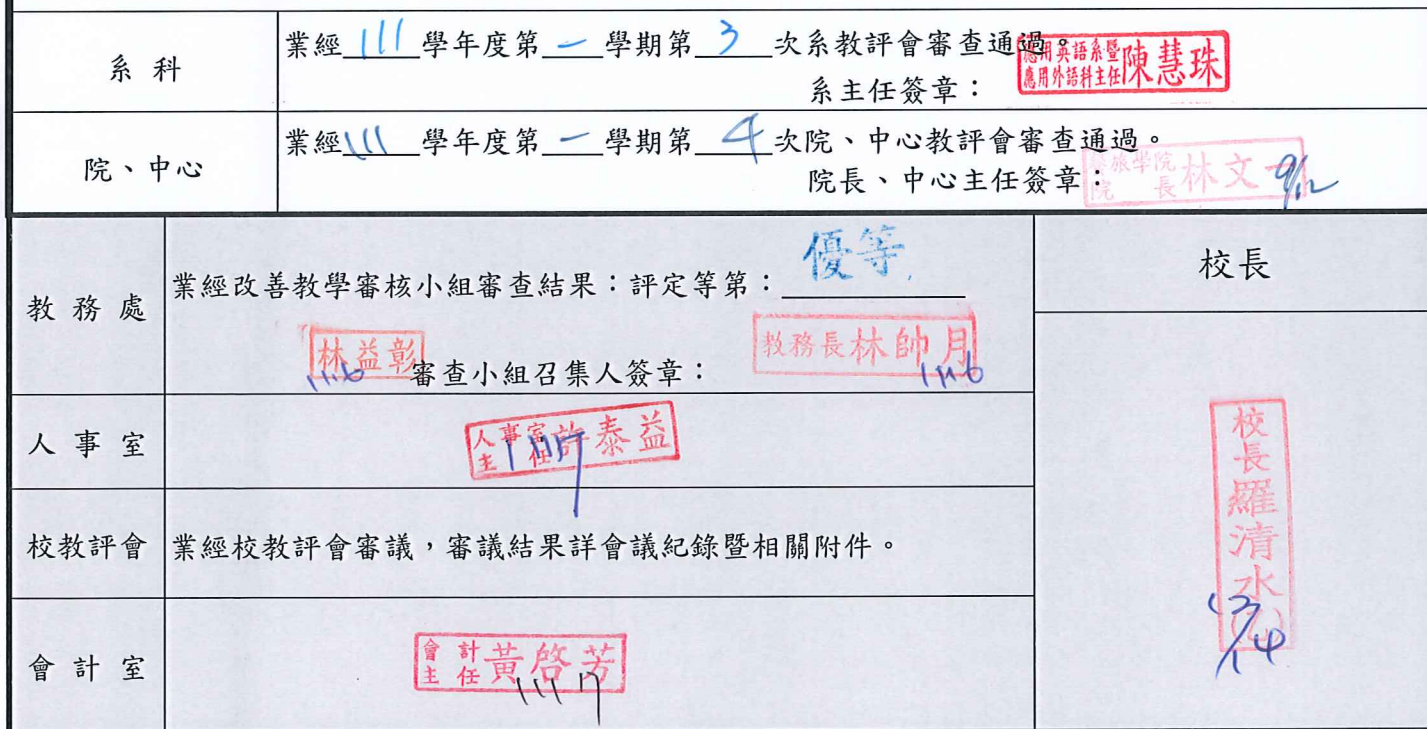 系科
業經 111 學年度第 一 學期第 3 次系教評會審查通過。
系主任簽章：
應用英語系暨
應用外語科主任
陳慧珠
院、中心
業經 111 學年度第 一 學期第 4 次院、中心教評會審查通過。
院長、中心主任簽章：
學院
院長
林文一
教務處
業經改善教學審核小組審查結果：評定等第：優等
林益彰
審查小組召集人簽章：
教務長林帥月
人事室
人事室
主任
許泰益
校教評會
業經校教評會審議，審議結果詳會議紀錄暨相關附件。
會計室
會計
主任
黃啓芳
校長
校長羅清水